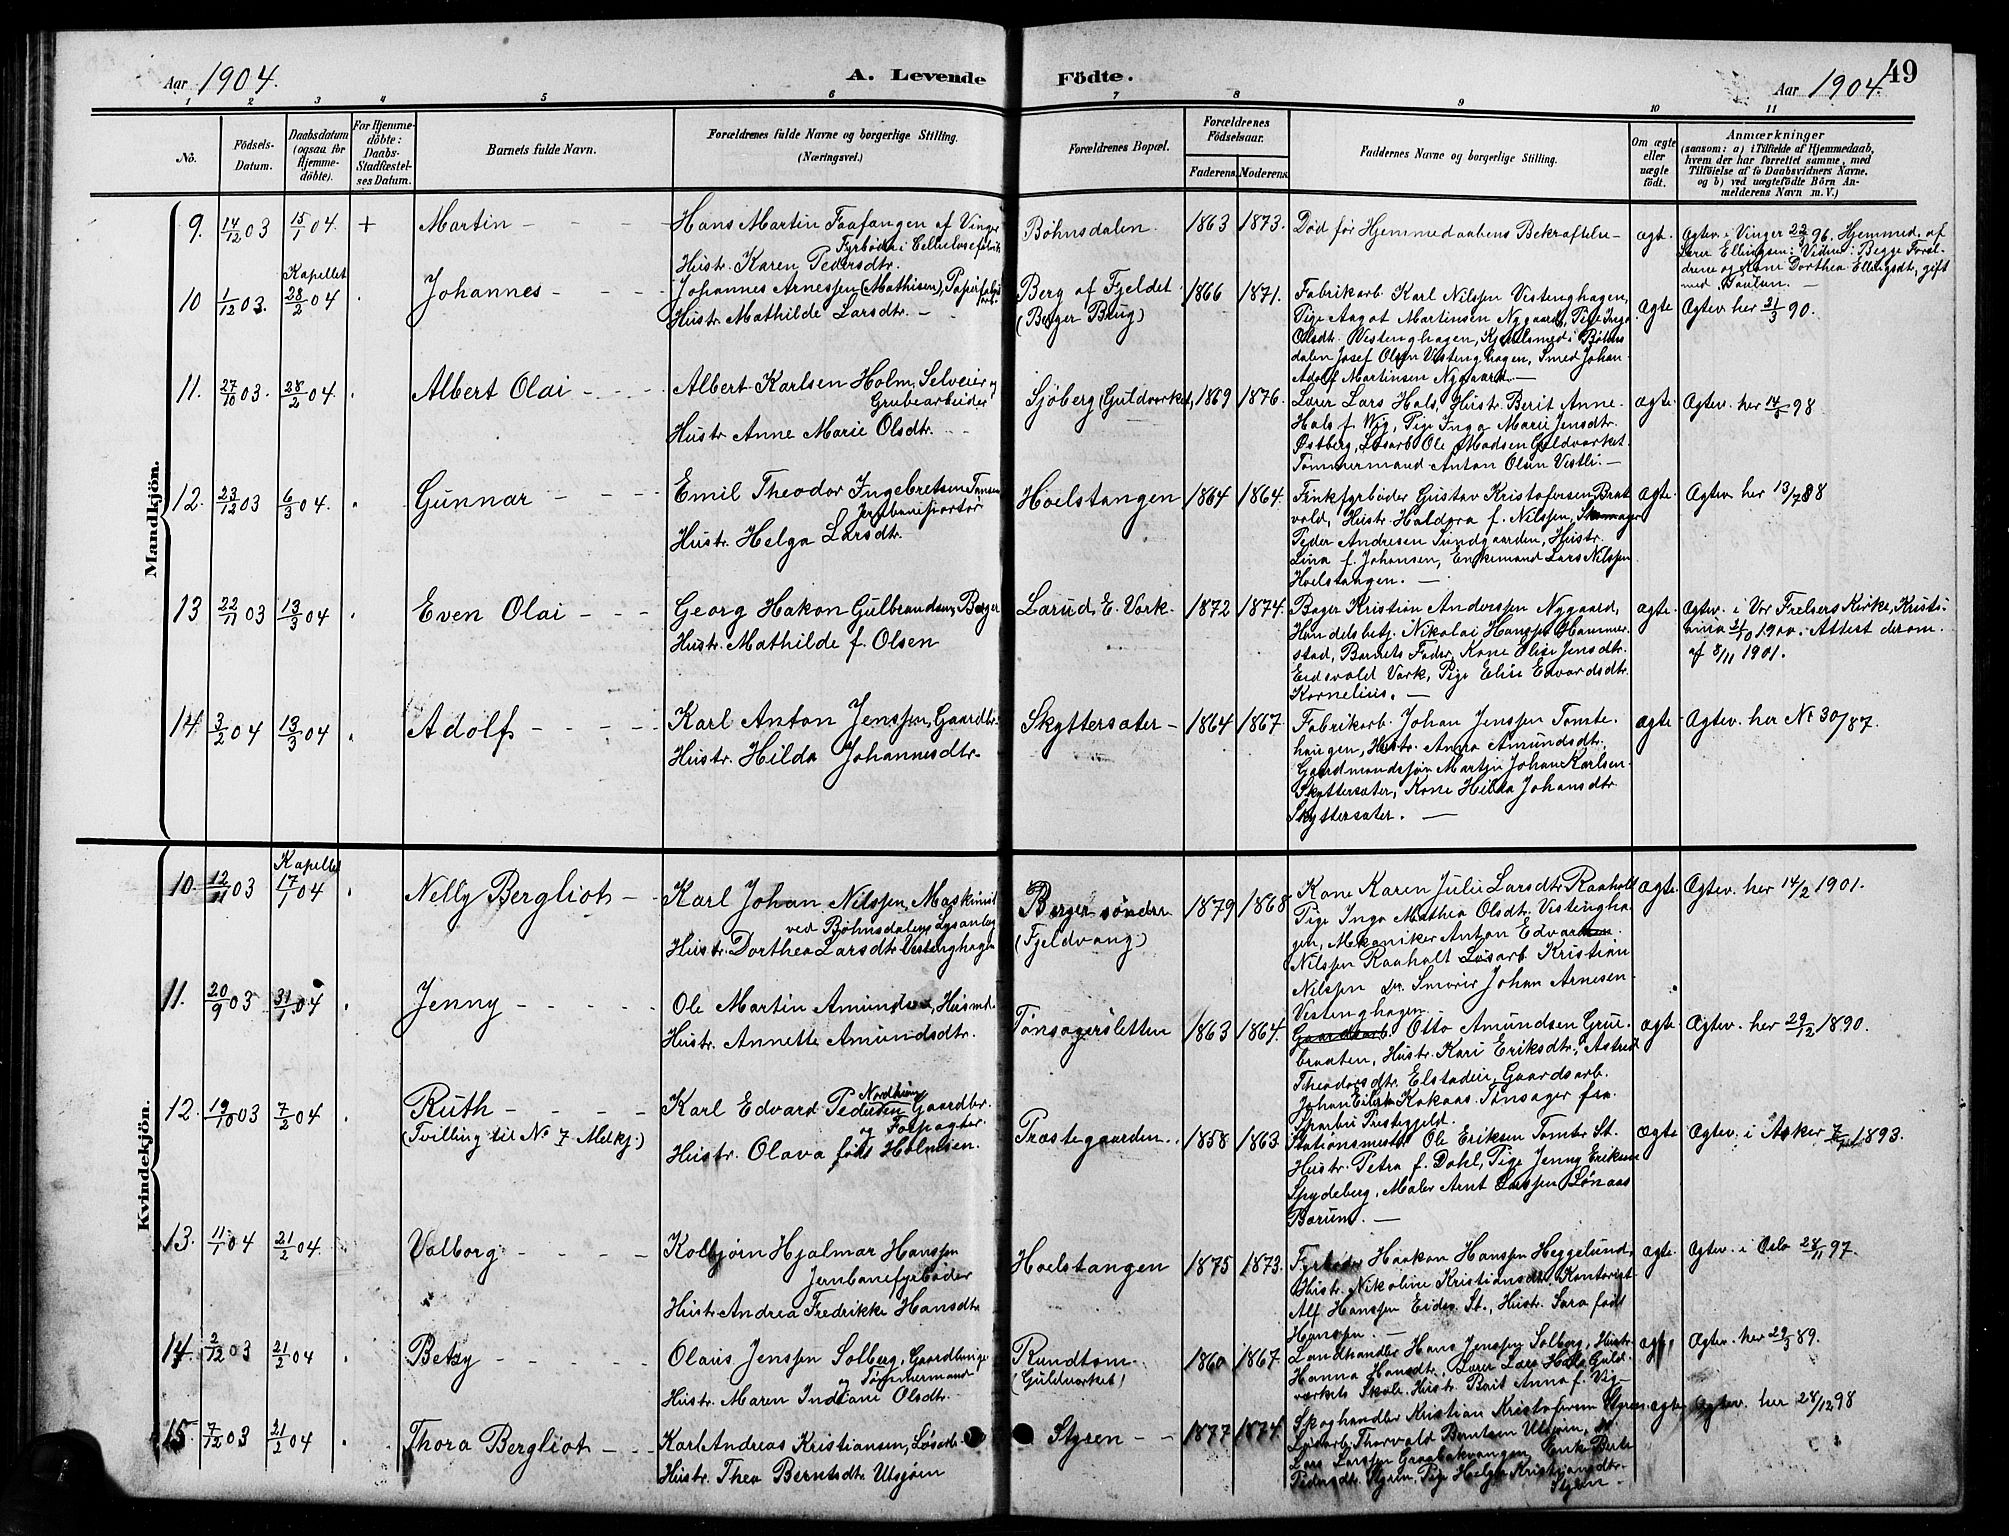 Aar 1904.
A. Levende Födte.
Aar 1904.
49
1 2 3 4 5 6 7 8 9 10 11
No.
Födsels-Datum.
Daabsdatum (ogsaa for Hjemmedöbte).
For Hjemmedöbte: Daabs-Stadfæstelses Datum.
Barnets fulde Navn.
Forældrenes fulde Navne og borgerlige Stilling.
(Næringsvei.)
Forældrenes Bopæl.
Forældrenes Födselsaar.
Faderens. Moderens.
Faddernes Navne og borgerlige Stilling.
Om ægte eller uægte födt.
Anmærkninger
(saasom: a) i Tilfælde af Hjemmedaab,
hvem der har forrettet samme, med
Tilföielse af to Daabsvidners Navne,
og b) ved uægtefödte Börn Anmelderens Navn m. V.)
Mandkjön.
9. 14/12 03 15/1 04. + Martin
Hans Martin Faafangen af Vinger
Fyrbøder i Cellulosefabrik
Hustr. Karen Pedersdtr.
Bøhnsdalen. 1863 1873.
Død før Hjemmedaabens Bekræftelse
ægt.
Ægtev. i Vinger 96. Hjemmed. af
Lars Ellingsen. Vidner: Begge Foræl-
drene og Kone Dorthea Ellingsdt, gift
med
10 1/12 03. Kapellet 28/2 04 Johannes
Johannes Arnessen (Mathisen), Papirfabrik
Hustr. Mathilde Larsdtr.
Berg af Fjeldet
(Berger Brug)
1866 1871.
Fabrikarb. Karl Nilssen Vestenghagen,
Pige Aagot Martinsen Nygaard, Pige Inga
Olsdt. Vestenghagen, Kjedelsmed i Bøhns
dalen Josef Olsen Vestenghagen, Smed Johan
Adolf Martinsen Nygaard.
ægte Ægtev. her 21/3 90.
11. 27/10 03. 28/2 04. Albert Olai
Albert Karlsen Holm, Selveier og
Grubearbeider
Hustr. Anne Marie Olsdtr.
Sjøberg (Guldverket) 1869 1876.
Lærer Lars Hals, Hustr. Berit Anne
Hals f. Wig, Pige Inga Marie Jensdtr.
Østberg, Løsarb. Ole Madsen Guldverket
Tømmermand Anton Olsen Vestli.
ægte Ægtev. her 98
12. 23/12 03 6/3 04. Gunnar
Emil Theodor Ingebretsen Tansen
Jernbaneportør
Hustr. Helga Larsdtr.
Hoelstangen 1864 1864.
Finkfyrbøder Gustav Kristofersen Brat
vold, Hustr. Haldora f. Nilssen, Skomager
Peder Andresen Sundgaarden, Hustr.
Lina f. Johansen, Enkemand Lars Nilssen
Hoelstangen.
ægte. Ægtev. her 13/7 88
13 22/11 03 13/3 04 Even Olai
Georg Hakon Gulbrandsen, Bager
Hustr. Mathilde f. Olsen
Larud, E. Verk. 1872 1874.
Bager Kristian Anderssen Nygaard,
Handelsbetj. Nikolai Hanssen Hammer
stad, Barnets Fader, Kone Elise Jensdtr.
Eidsvold Verk, Pige Elise Edvardsdtr.
Kornelius.
ægte Ægtev. i Vor Frelsers Kirke, Kristi-
ania 21/10 1900. Attest derom
af 8/11 1901.
14. 3/2 04 13/3 04 Adolf
Karl Anton Jenssen, Gaardbr.
Hustr. Hilda Johannesdtr.
Skyttersæter 1864 1867.
Fabrikarb. Johan Jenssen Tomte-
haugen, Hustr. Anna Amundsdtr.
Gaardmandssøn Martin Johan Karlsen
Skyttersæter, Kone Hilda Johansdtr
Skyttersæter.
ægte Ægtev. her No 30/87.
Kvindekjön.
10. 12/11 03 Kapellet 17/1 04 Nelly Bergliot
Karl Johan Nilssen, Maskinist
ved Bøhnsdalens Lysanlæg
Hustr. Dorthea Larsdtr Vestenghagen
Berger søndre
(Fjeldvang)
1879 1868
Kone Karen Julie Larsdtr Raaholt
Pige Inga Mathea Olsdt. Vestengha
gen, Mekaniker Anton Edvardsen
Nilssen Raaholt Løsarb. Kristian
Nilssen Do. Smører Johan Arnesen
Vestenghagen
ægte Ægtev. her 14/2 1901.
11. 20/9 03 31/1 04 Jenny
Ole Martin Amundsen, Husmd.
Hustr. Annette Amundsdtr.
Tønsagersletten 1863 1864.
Gaardbarb. Otto Amundsen Grue-
braaten, Hustr. Kari Eriksdtr, Astrid
Theodorsdtr. Elstadeie, Gaardsarb.
Johan Eilert Kokaas Tønsager fra
Sparbu Præstegjeld.
ægte Ægtev. her 29/2 1890.
12. 19/10 03 7/2 04 Ruth
(Tvilling til No 7 Mdkj.)
Karl Edvard Pedersen Nordhaug Gaardbr.
og Forpagter
Hustr. Olava født Holmsen.
Præstegaarden. 1858 1863
Stationsmester Ole Eriksen Tomter St.
Hustr. Petra f. Dahl, Pige Jenny Eriksen
Spydeberg, Maler Arnt Larssen Lønaas
Bærum.
ægte Ægtev. i Asker 1893.
13. 11/1 04 21/2 04. Valborg
Kolbjørn Hjalmar Hanssen
Jernbanefyrbøder
Hustr. Andrea Fredrikke Hansdtr
Hoelstangen 1875 1873.
Fyrbøder Haakon Hanssen Heggelund,
Hustr. Nikoline Kristiansdtr, Kontorist
Alf Hanssen Eidsv. St., Hustr. Sara født
Hanssen.
ægte. Ægtev. i Oslo 28/11 97.
14. 2/12 03 21/2 04 Betzy
Olaus Jenssen Solberg, Gaardbruger
og Tømmermand
Hustr. Maren Indiane Olsdtr.
Rundtom
(Guldverket)
1860 1867.
Landhandler Hans Jenssen Solberg, Hustr.
Hanna Hansdtr, Lærer Lars Hals Guld-
verkets Skole. Hustr. Brit Anna f. Vig
ægte, Ægtev. her 29/3 89.
15. 7/12 03 21/2 04 Thora Bergliot
Karl Andreas Kristiansen, Løsarb.
Hustr. Thea Berntsdtr. Utsjøen
Styren 1877 1874.
Skoghandler Kristian Kristofersen Styren
Løsarb. Thorvald Berntsen Utsjøen,
Lars Larssen Graabækvangen, Enke Berte
Pedersdtr. Styren, Pige Helga Kristiansdtr.
Styren
ægte Ægtev. her 28/12 98